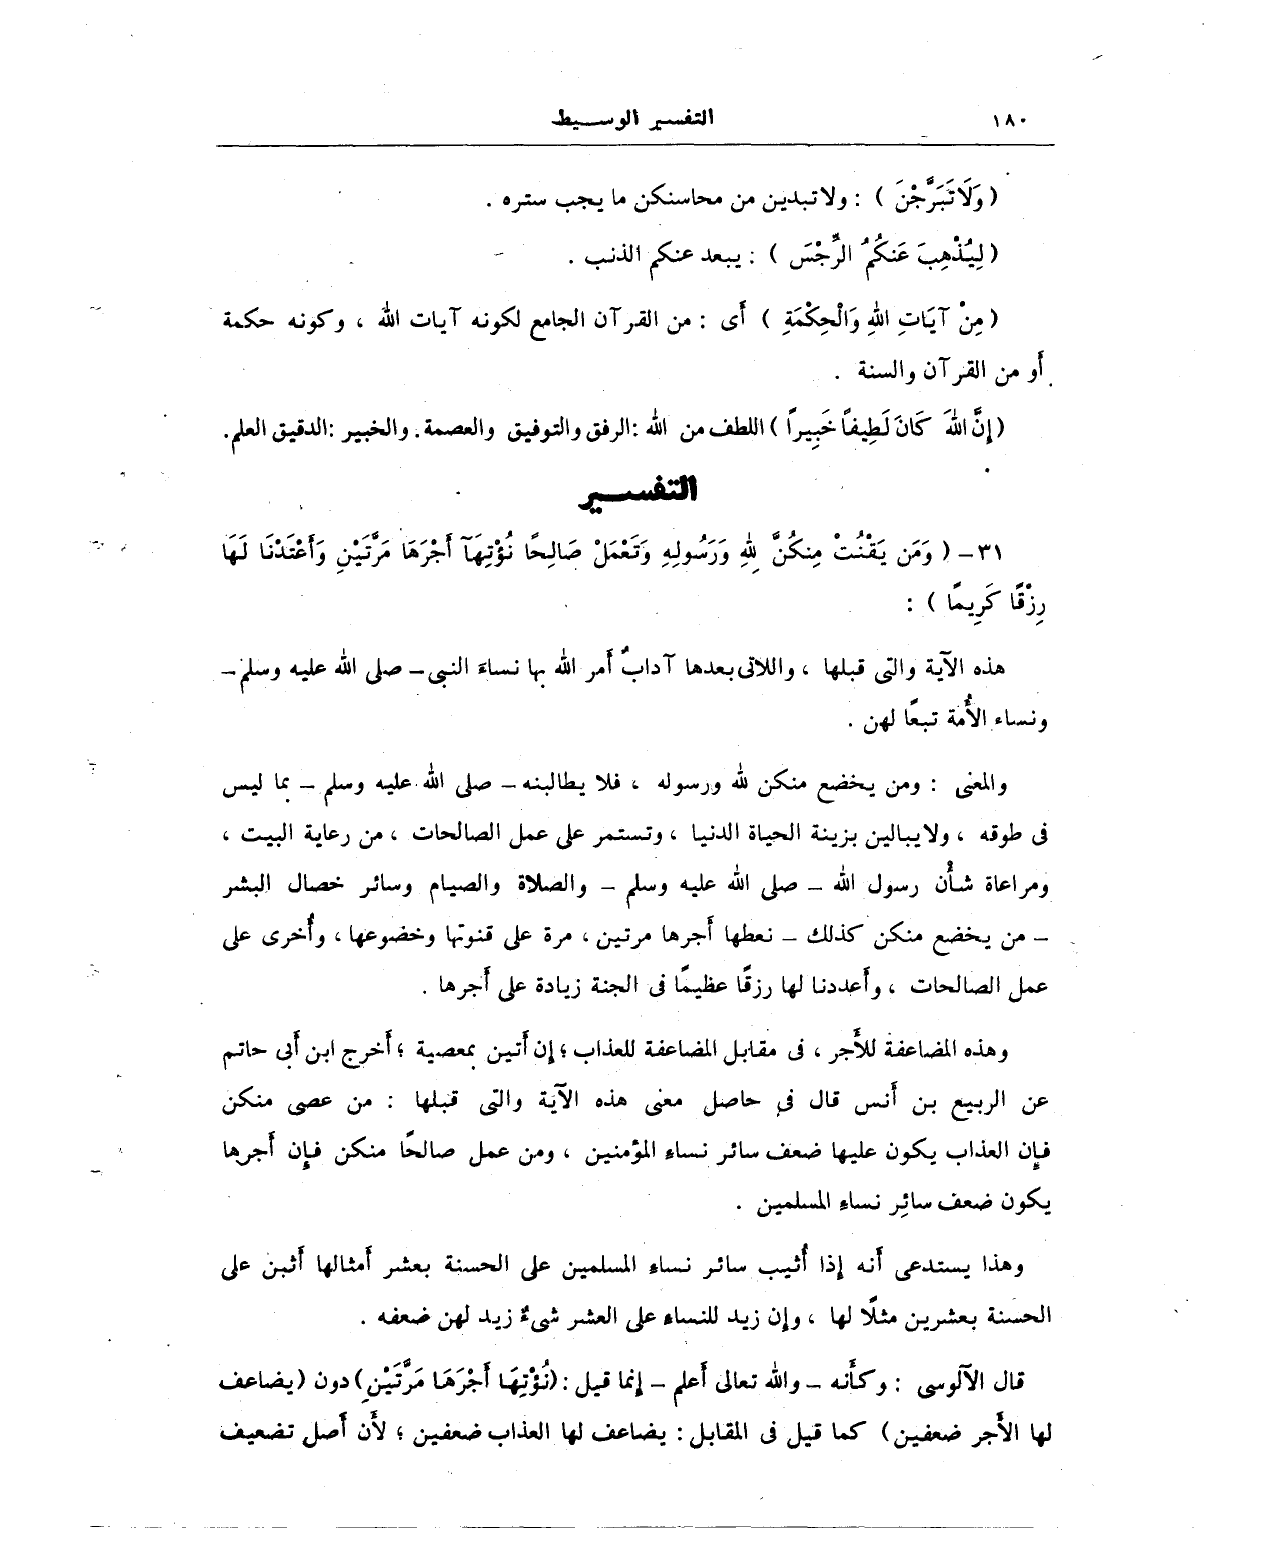 ١٨٠ التفسير الوسيط
( وَلَا تَبَرَّجْنَ ) : ولا تبدين من محاسنكن ما يجب ستره .
( لِيُذْهِبَ عَنكُمُ الرِّجْسَ ) : يبعد عنكم الذنب .
( مِنْ آيَاتِ اللهِ وَالْحِكْمَةِ ) أى : من القرآن الجامع لكونه آيات الله ، وكونه حكمة
أو من القرآن والسنة .
( إِنَّ اللهَ كَانَ لَطِيفاً خَبِيراً ) اللطف من الله : الرفق والتوفيق والعصمة . والخبير : الدقيق العلم .
التفسير
٣١ - ( وَمَن يَقْنُتْ مِنكُنَّ لِلهِ وَرَسُولِهِ وَتَعْمَلْ صَالِحًا نُؤْتِهَآ أَجْرَهَا مَرَّتَيْنِ وَأَعْتَدْنَا لَهَا
رِزْقًا كَرِيمًا ) :
هذه الآية والتى قبلها ، واللاتى بعدها آدابٌ أمر الله بها نساءَ النبى - صلى الله عليه وسلم -
ونساء الأُمة تبعًا لهن .
والمعنى : ومن يخضع منكن لله ورسوله ، فلا يطالبنه - صلى الله عليه وسلم - بما ليس
فى طوقه ، ولا يبالين بزينة الحياة الدنيا ، وتستمر على عمل الصالحات ، من رعاية البيت ،
ومراعاة شأْن رسول الله - صلى الله عليه وسلم - والصلاة والصيام وسائر خصال البشر
- من يخضع منكن كذلك - نعطها أجرها مرتين ، مرة على قنوتها وخضوعها ، وأُخرى على
عمل الصالحات ، وأعددنا لها رزقًا عظيمًا فى الجنة زيادة على أجرها .
وهذه المضاعفة للأجر ، فى مقابل المضاعفة للعذاب ؛ إن أتين بمعصية ؛ أخرج ابن أبى حاتم
عن الربيع بن أنس قال فى حاصل معنى هذه الآية والتى قبلها : من عصى منكن
فإن العذاب يكون عليها ضعف سائر نساء المؤمنين ، ومن عمل صالحًا منكن فإن أجرها
يكون ضعف سائر نساء المسلمين .
وهذا يستدعى أنه إذا أُثيب سائر نساء المسلمين على الحسنة بعشر أمثالها أثبن على
الحسنة بعشرين مثلًا لها ، وإن زيد للنساء على العشر شىءٌ زيد لهن ضعفه .
قال الآلوسى : وكأنه - والله تعالى أعلم - إنما قيل : ( نُؤْتِهَا أَجْرَهَا مَرَّتَيْنِ ) دون ( يضاعف
لها الأجر ضعفين ) كما قيل فى المقابل : يضاعف لها العذاب ضعفين ؛ لأن أصل تضعيف